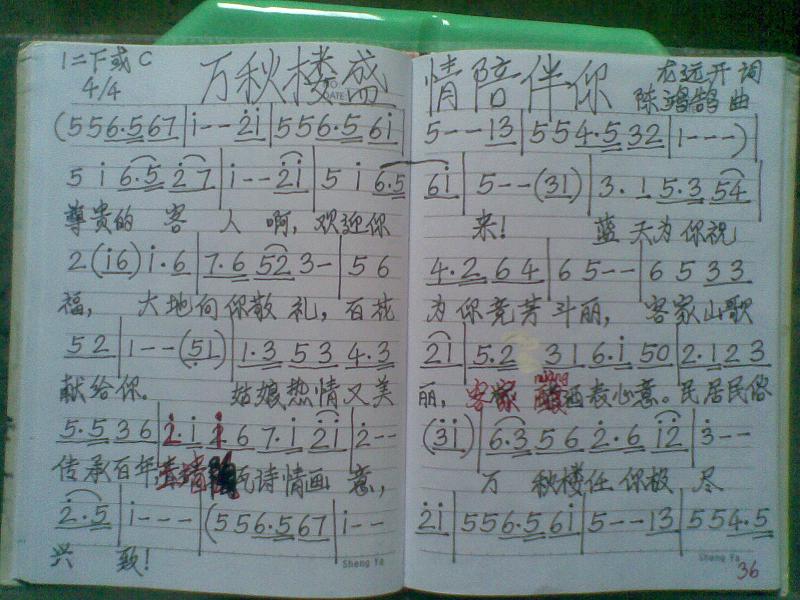 1=下或C 万秋楼盛情陪伴你 龙远开 词
4/4 陈鸿鹄 曲
(5 5 6·5 6 7 | i - - 2̇ i | 5 5 6·5 6 i | 5 - - 1 3 | 5 5 4·5 3 2 | 1 - - - )
5 i 6·5 2̇ 7 | i - - 2̇ i | 5 i 6·5 6 i | 5 - - (3 1) | 3· 1 5·3 5 4
尊贵的 客 人 啊, 欢迎你 来! 蓝天为你祝
2 (i 6) i·6 | 7·6 5 2 3 - | 5 6 4·2 6 4 | 6 5 - - | 6 5 3 3
福, 大地向你敬礼, 百花为你竞芳斗丽, 客家山歌
5 2 | 1 - - (5 1) | 1·3 5 3 4·3 2 i | 5·2 3 1 6·i 5 0 | 2·1 2 3
献给你. 姑娘热情又美丽, 客家 niáng 酒表心意。民居民俗
5·5 3 6 | 2̇·i 2̇ 6 7·i 2̇ i | 2̇ - - (3̇ i) | 6·3 5 6 2·6 i 2̇ | 3̇ - -
传承百年 瓦诗情画 意, 万 秋楼任你极 尽
2·5 | i - - - | (5 5 6·5 6 7 | i - - 2̇ i | 5 5 6·5 6 i | 5 - - 1 3 | 5 5 4·5
兴 致!
Sheng Ya
Sheng Ya
36